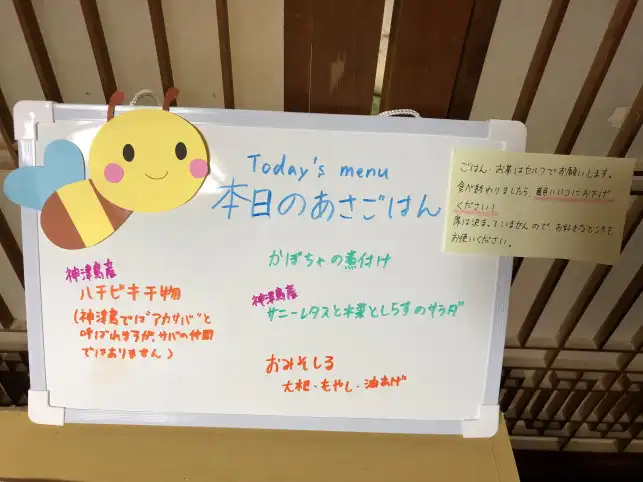 Today's menu
本日のあさごはん
神津島産
ハチビキ干物
(神津島では"アカサバ"と
呼ばれますが、サバの仲間
ではありません)
かぼちゃの煮付け
神津島産
サニーレタスと水菜としらすのサラダ
おみそしる
大根・もやし・油あげ
ごはん・お茶はセルフでお願いします。
食べ終わりましたら、
ください!
席は決まっていませんので、お好きなところを
お使いください。